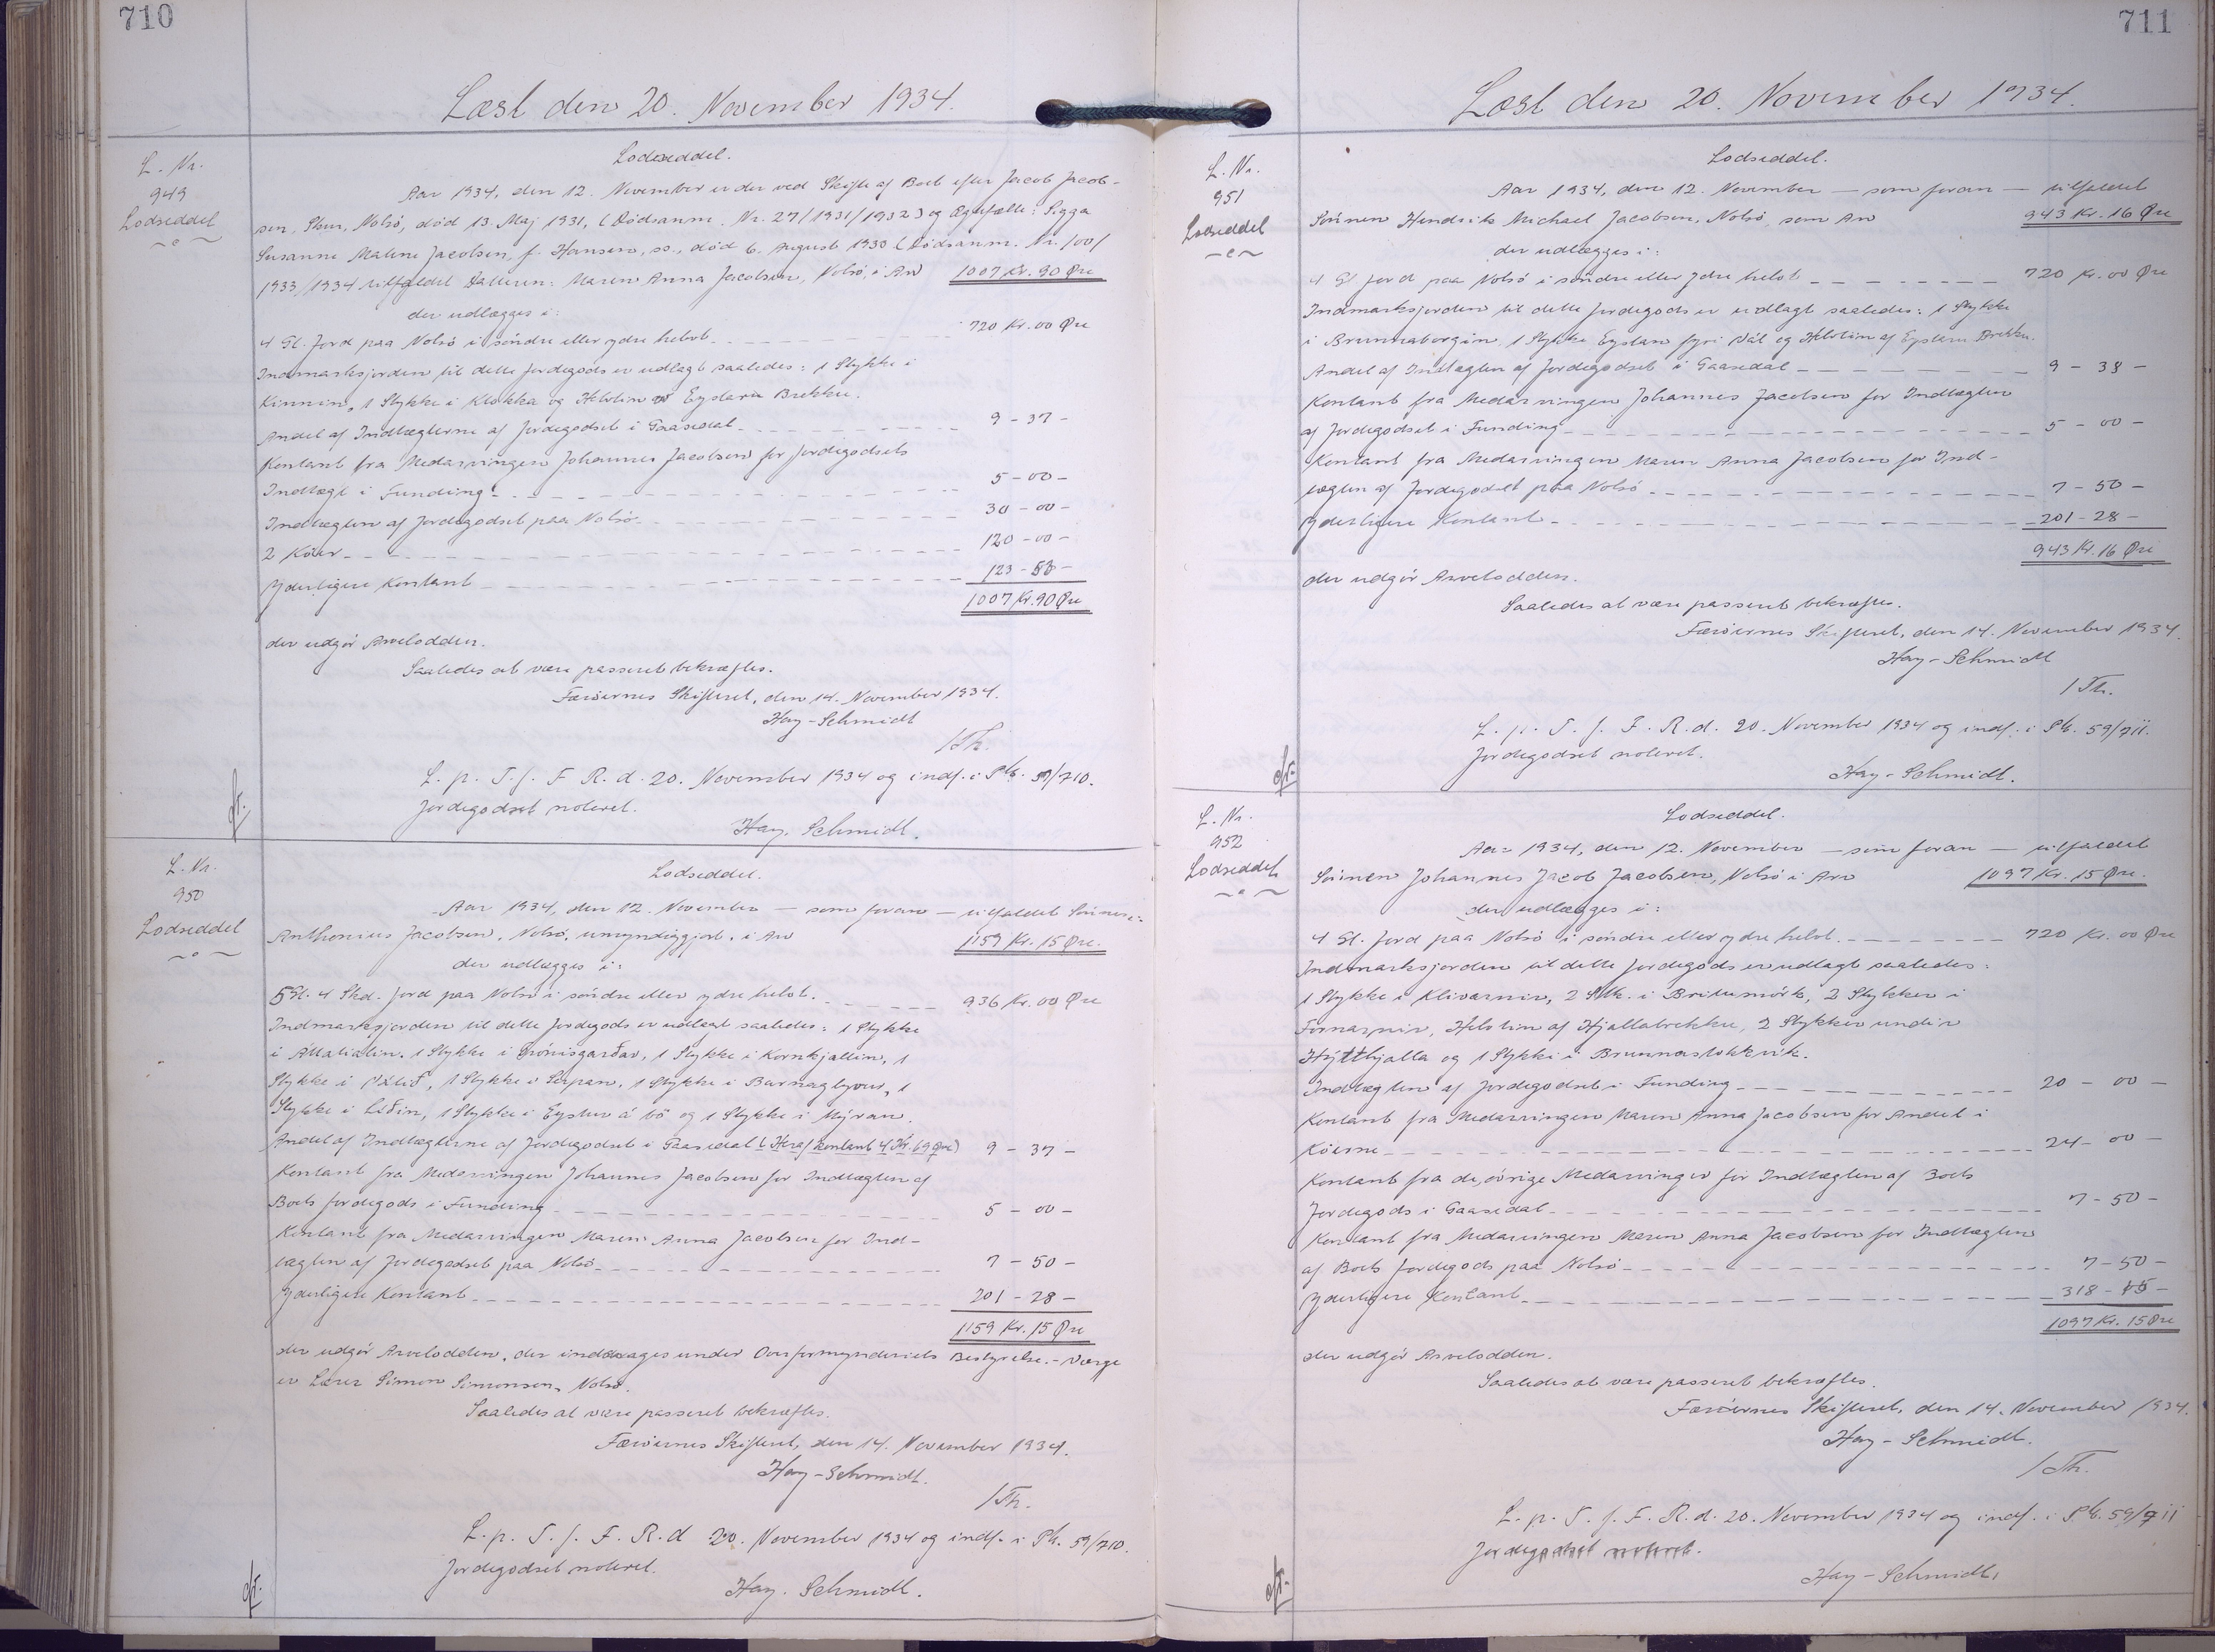 710
Læst den 20. November 1934.
L. Nr.
949
Lodseddel
Lodseddel.
Aar 1934, den 12. November er der ved Skifte af Boet efter Jacob Jacob-
sen, Skuo, Nolsö, död 13. Maj 1931, (Dödsanm. Nr. 27/1931/1932) og Ægtefælle: Sigga
Susanne Malene Jacobsen, f. Hansen, ss., död 6. August 1933 (Dödsanm. Nr. 100/
1933/1934 tilfaldet Datteren: Maren Anna Jacobsen, Nolsö, i Arv 1007 Kr. 90 Øre
der udlægges i:
4 Gl. Jord paa Nolsö i söndre eller ydre helvt 720 Kr. 00 Øre
Indmarksjorden til dette Jordegods er udlagt saaledes: 1 Stykke i
Kinnin, 1 Stykke i Klokka og Helvtin af Eystaru Brekku.
Andel af Indtægterne af Jordegodset i Gaasedal 9 - 37 -
Kontant fra Medarvingen Johannes Jacobsen for Jordegodsets
Indtægt i Funding 5 - 00 -
Indtægten af Jordegodset paa Nolsö 30 - 00 -
2 Köer 120 - 00 -
Yderligere Kontant 123 - 53 -
1007 Kr. 90 Øre
der udgör Arvelodden.
Saaledes at være passeret bekræftes.
Færöernes Skifteret, den 14. November 1934.
Hay-Schmidt
/Th.
L. p. T. f. F. R. d. 20. November 1934 og indf. i Pb. 59/710.
Jordegodset noteret.
Hay. Schmidt.
L. Nr.
950
Lodseddel
Lodseddel.
Aar 1934, den 12. November – som foran – tilfaldet Sönnen:
Anthonius Jacobsen, Nolsö, umyndiggjort, i Arv 1159 Kr. 15 Øre.
der udlægges i:
5 Gl. 4 Skd. Jord paa Nolsö i söndre eller ydre helvt. 936 Kr. 00 Øre
Indmarksjorden til dette Jordegods er udlagt saaledes: 1 Stykke
i Attalialin, 1 Stykke i Grónisgarðar, 1 Stykke i Kornkjallin, 1
Stykke i Válið, 1 Stykke i Serpan, 1 Stykke i Barnaglyvur, 1
Stykke i Liðin, 1 Stykke i Eystur á bö og 1 Stykke i Mýran.
Andel af Indtægterne af Jordegodset i Gaasedal (Heraf kontant 4 Kr. 69 Øre) 9 - 37 -
Kontant fra Medarvingen Johannes Jacobsen for Indtægten af
Boets Jordegods i Funding 5 - 00 -
Kontant fra Medarvingen Maren Anna Jacobsen for Ind-
tægten af Jordegodset paa Nolsö 7 - 50 -
Yderligere Kontant 201 - 28 -
1159 Kr. 15 Øre
der udgör Arvelodden, der inddrages under Overformynderiets Bestyrelse. - Værge
er Lærer Simon Simonsen, Nolsö.
Saaledes at være passeret bekræftes.
Færöernes Skifteret, den 14. November 1934.
Hay-Schmidt.
/Th.
L. p. T. f. F. R. d 20. November 1934 og indf. i Pb. 59/710.
Jordegodset noteret.
Hay. Schmidt.
711
Læst den 20. November 1934.
L. Nr.
951
Lodseddel
Lodseddel.
Aar 1934, den 12. November – som foran – tilfaldet
Sönnen Hendrik Michael Jacobsen, Nolsö, som Arv 943 Kr. 16 Øre
der udlægges i:
4 Gl Jord paa Nolsö i söndre eller ydre helvt 720 Kr. 00 Øre
Indmarksjorden til dette Jordegods er udlagt saaledes: 1 Stykke
i Brunnaborgin, 1 Stykke Eystan fyri Vál og Helvtin af Eystaru Brekku.
Andel af Indtægten af Jordegodset i Gaasedal 9 - 38 -
Kontant fra Medarvingen Johannes Jacobsen for Indtægten
af Jordegodset i Funding 5 - 00 -
Kontant fra Medarvingen Maren Anna Jacobsen for Ind-
tægten af Jordegodset paa Nolsö 7 - 50 -
Yderligere Kontant 201 - 28 -
943 Kr. 16 Øre
der udgör Arvelodden.
Saaledes at være passeret bekræftes.
Færöernes Skifteret, den 14. November 1934.
Hay-Schmidt
/Th.
L. p. T. f. F. R. d. 20. November 1934 og indf. i Pb. 59/711.
Jordegodset noteret.
Hay-Schmidt.
L. Nr.
952
Lodseddel
Lodseddel.
Aar 1934, den 12. November – som foran – tilfaldet
Sönnen Johannes Jacob Jacobsen, Nolsö i Arv 1097 Kr. 15 Øre.
der udlægges i:
4 Gl. Jord paa Nolsö i söndre eller ydre helvt. 720 Kr. 00 Øre
Indmarksjorden til dette Jordegods er udlagt saaledes:
1 Stykke i Klivarnir, 2 Stk. i Breitumörk, 2 Stykker i
Fornarnir, Helvtin af Hjallabrekku, 2 Stykker undir
Hýtthjalla og 1 Stykke i Brunnastokkvík.
Indtægten af Jordegodset i Funding 20 - 00 -
Kontant fra Medarvingen Maren Anna Jacobsen for Andel i
Köerne 24 - 00 -
Kontant fra de övrige Medarvinger for Indtægten af Boets
Jordegods i Gaasedal 7 - 50 -
Kontant fra Medarvingen Maren Anna Jacobsen for Indtægten
af Boets Jordegods paa Nolsö 7 - 50 -
Yderligere Kontant 318 - 15 -
1097 Kr. 15 Øre
der udgör Arvelodden.
Saaledes at være passeret bekræftes.
Færöernes Skifteret, den 14. November 1934.
Hay-Schmidt.
/Th.
L. p. T. f. F. R. d. 20. November 1934 og indf. i Pb. 59/711
Jordegodset noteret.
Hay-Schmidt.